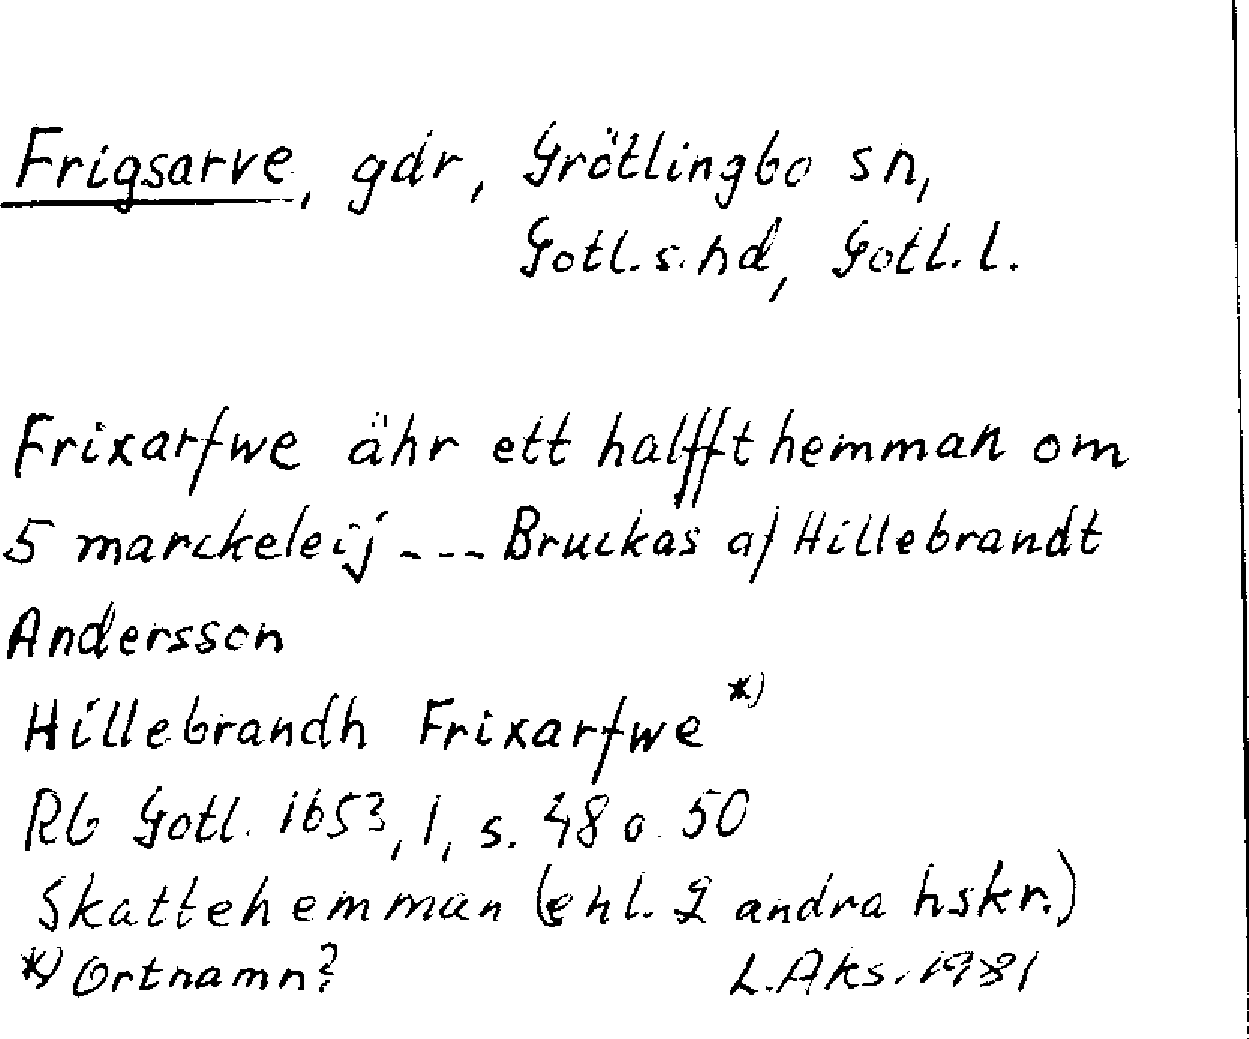 Frigsarve, gdr, Grötlingbo sn,
Gotl. s. hd, Gotl. l.
Frixarfwe ähr ett halfft hemman om
5 marckeleij --- Bruckas af Hillebrandt
Andersson
Hillebrandh Frixarfwe *)
Rb Gotl. 1653, 1, s. 48 o. 50
Skattehemman (enl. 2 andra hskr.)
*) Ortnamn?
L. Aks. 1981